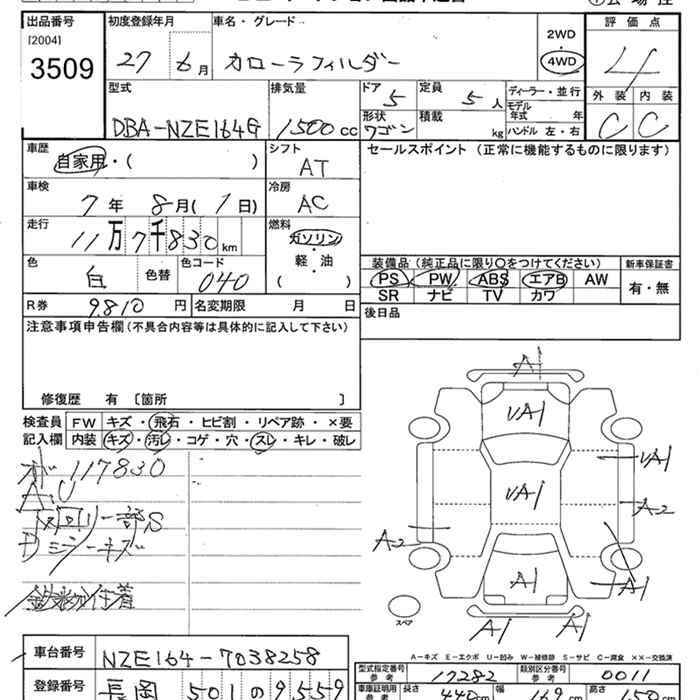 出品番号 初度登録年月 車名・グレード 2WD 評価点
[2004] 27 6月 カローラフィルダー 4WD 4
3509 型式 排気量 ドア 定員 ディーラー・並行 外装 内装
DBA-NZE164G 1500cc 5 5人 モデル年式 年 C C
形状 積載 kg ハンドル 左・右
ワゴン
車歴 シフト セールスポイント(正常に機能するものに限ります)
自家用・( ) AT
車検 冷房
7年 8月(1日) AC
走行 燃料
11万7千830km ガソリン・軽・油
色 色替 色コード ( ) 装備品(純正品に限り○をつけてください) 新車保証書
白 040 PS PW ABS エアB AW 有・無
R券 9,810円 名変期限 月 日 SR ナビ TV カワ
注意事項申告欄(不具合内容等は具体的に記入して下さい) 後日品
修復歴 有 [箇所 ]
検査員 FW キズ・飛石・ヒビ割・リペア跡・×要
記入欄 内装 キズ・汚レ・コゲ・穴・スレ・キレ・破レ
117830
A,U
一部S
Dミラーキズ
鉄粉付着
A1
VA1
VA1
VA1
A2
A2
A1
A1
A1 A1
スペア
A-キズ E-エクボ U-凹み W-補修跡 S-サビ C-腐食 ××-交換済
車台番号 NZE164-7038258
型式指定番号 参考 17282 類別区分番号 参考 0011
登録番号 長岡 501 の 9559
車庫証明用 参考 長さ 440cm 幅 169cm 高さ 150cm